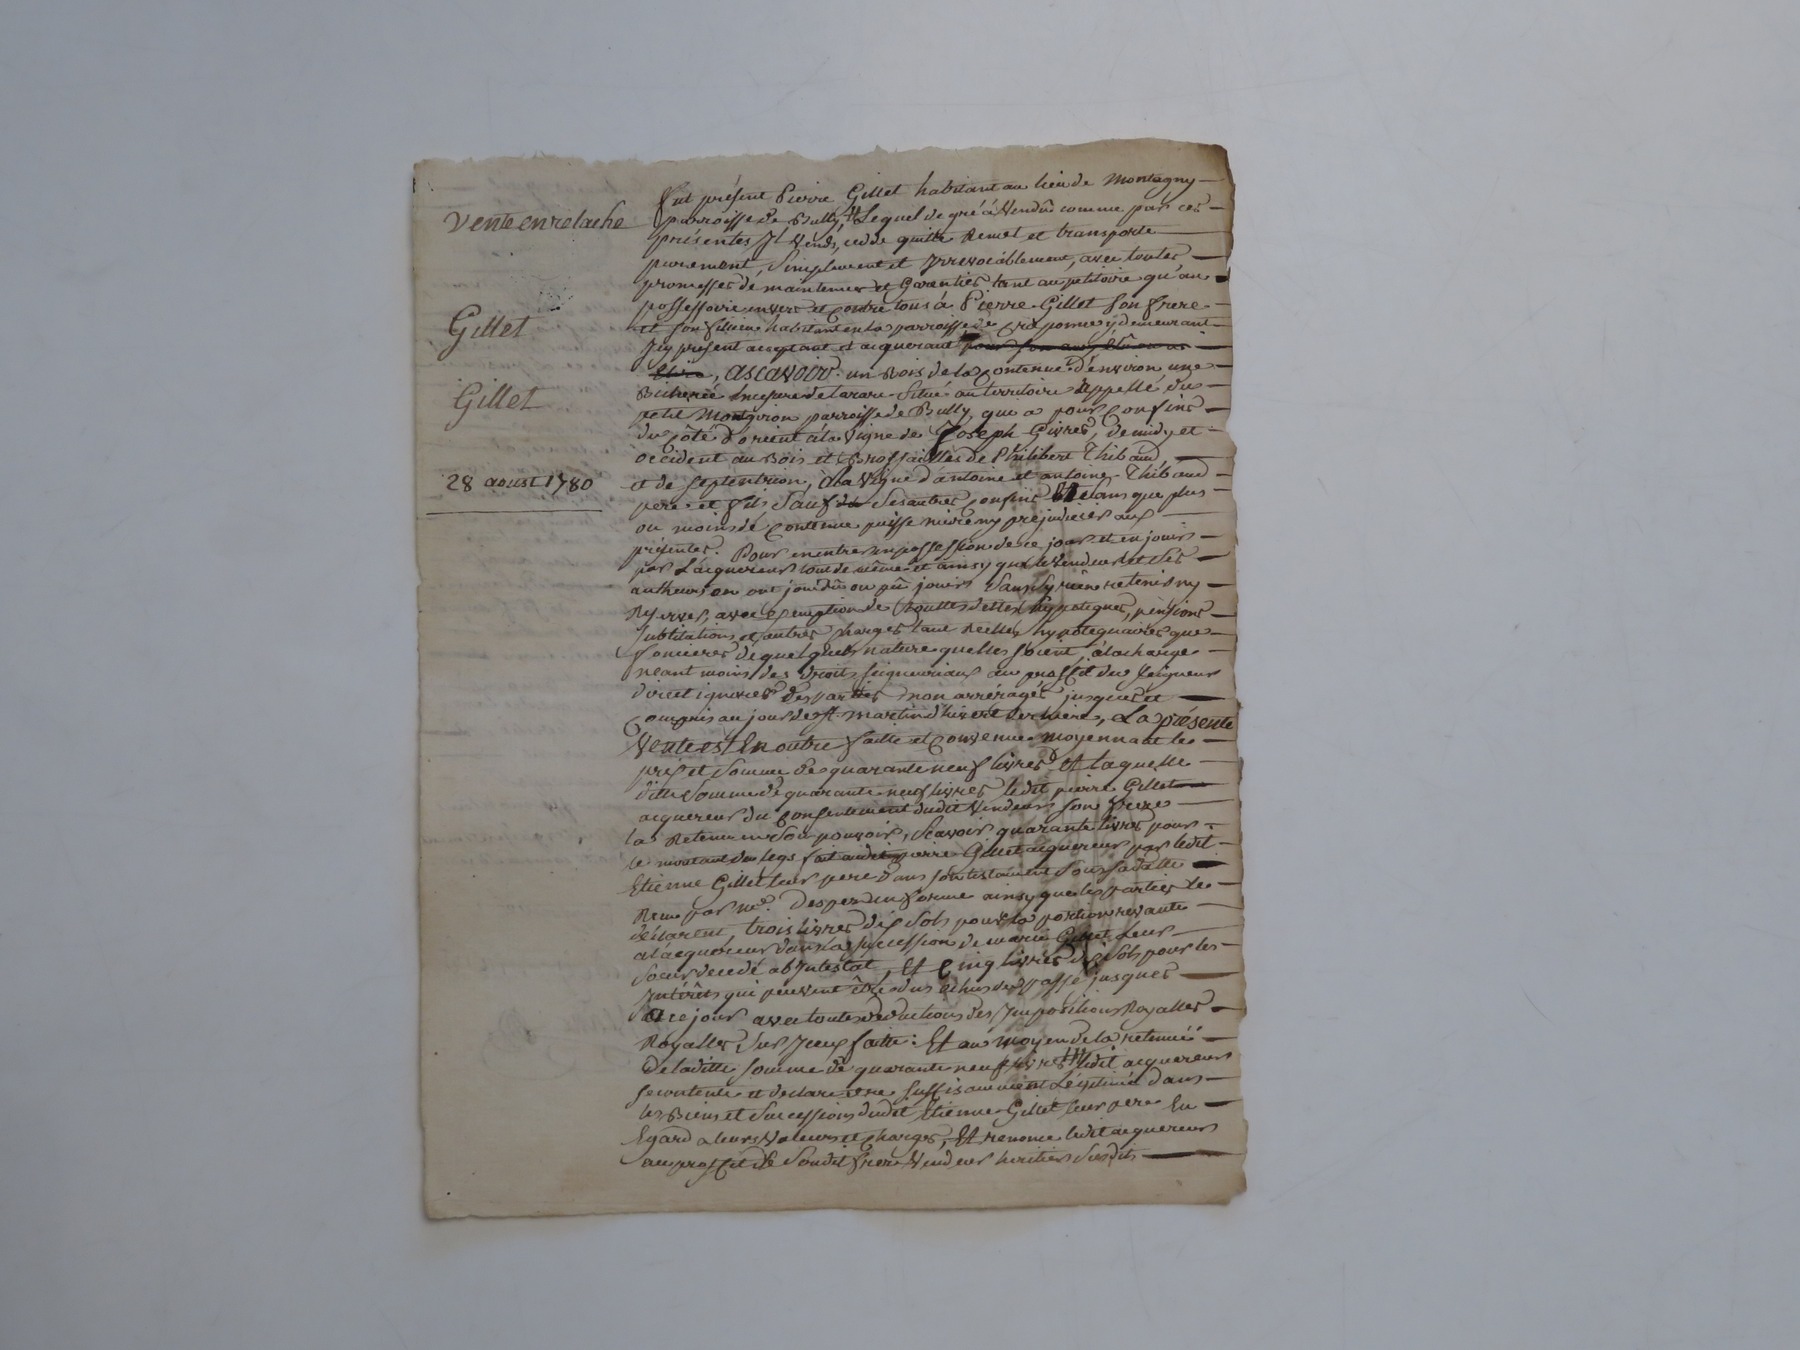 Vente en relache
Gillet
Gillet
28 aoust 1780
fut présent Pierre Gillet habitant au lieu de Montagny
parroisse de Bully, Lequel de gré à Vendu comme par ces
présentes Il Vend, cedde quitte Remet et transporte
purement, Simplement et Irrevocablement, avec toutes
promesses de maintenir et Garentir tant au petitoire qu'au
possessoire envers et contre tous à Pierre Gillet son frere
et son habitant en la parroisse de y demeurant
Icy présent acceptant et acquerant
, ascavoir un Bois de la contenue d'environ une
Bicherée mesure de tarare Situé au territoire appellé du
petit Montgiron parroisse de Bully, qui a pour confins
du côté d'orient à la Vigne de Joseph Givres, de midy et
occident au Bois et Brossailles de Philibert Thibaud,
et de septentrion, à la Vigne d'antoine et antoine Thibaud
pere et fils Sauf Ses autres confins sans que plus
ou moins de contenue puisse nuire ny préjudicier aux
présentes. Pour entrer en possession de ce jour et en jouir
par L'acquereur tout de même et ainsy que le Vendeur et Ses
autheurs en ont joui dû ou pû jouir Sans y rien retenir ny
Reserver, avec exemption de touttes dettes hypoteques, pensions
substitutions et autres charges tant Reelles hypotequaires que
foncieres de quelques nature quelles soient, à la charge
néant moins des droits seigneuriaux au proffit du Seigneur
direct ignorés des parties non arréragés jusques et
compris au jour de st martin d'hiver derniere, La présente
Vente est En outre faitte et convenue moyennant le
prix et Somme de quarante neuf livres Et laquelle
ditte Somme de quarante neuf livres ledit pierre Gillet
acquereur du consentement dudit Vendeur son frere
la Retenue en Son pouvoir, Scavoir quarante livres pour
le montant du legs fait audit pierre Gillet acquereur par ledit
Etienne Gillet leur pere Dans son testament Sous sa datte
Reçu par me. en forme ainsy que les parties le
déclarent, trois livres dix Sols pour la portion revenante
à l'acquereur dans la succession de marie Gillet Leur
Soeur decedé ab Intestat, Et cinq livres dix Sols pour les
Intérêts qui peuvent être dus echus du passé jusques
à ce jour avec toutes déductions des Impositions Royalles
Royalles, Sur Iceux faitte: Et au moyen de la retenuë
de laditte Somme de quarante neuf livres ledit acquereur
se contente et declare etre suffisamment Légitimé dans
les Biens et Successions dudit Etienne Gillet leur pere Eu
Egard a leurs Valeurs et charges, Et renonce ledit acquereur
au proffit de Sondit frere Vendeur heritier Susdit